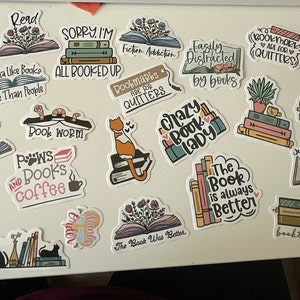 Read
SORRY I'M
ALL BOOKED UP
Fiction Addiction
Easily
Distracted
by books
Bookmarks
ARE FOR
QUITTERS
Like Books
Than People
Bookmarks
ARE FOR
QUITTERS
Book Worm
CRAZY
BOOK
LADY
PAWS
AND BOOKS
COFFEE
The
Book is
always
Better
The Book Was Better